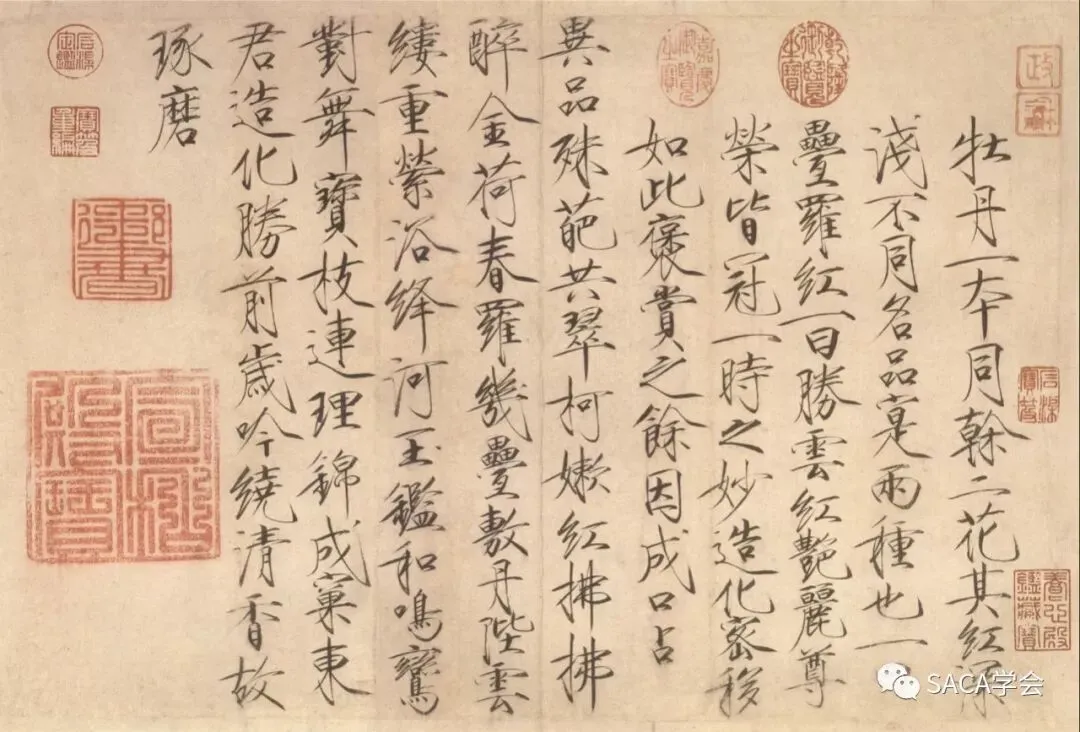 牡丹一本同榦二花其紅深
淺不同名品寔兩種也一
疊羅紅一曰勝雲紅艷麗尊
榮皆冠一時之妙造化密移
如此褒賞之餘因成口占
異品殊葩共翠柯嫩紅拂拂
醉金荷春羅幾疊敷丹陛雲
縷重縈浴絳河玉鑑和鳴鸞
對舞寶枝連理錦成窠東
君造化勝前歲吟繞清香故
琢磨
乾隆御覽之寶
嘉慶御覽之寶
養心殿鑑藏寶
SACA学会